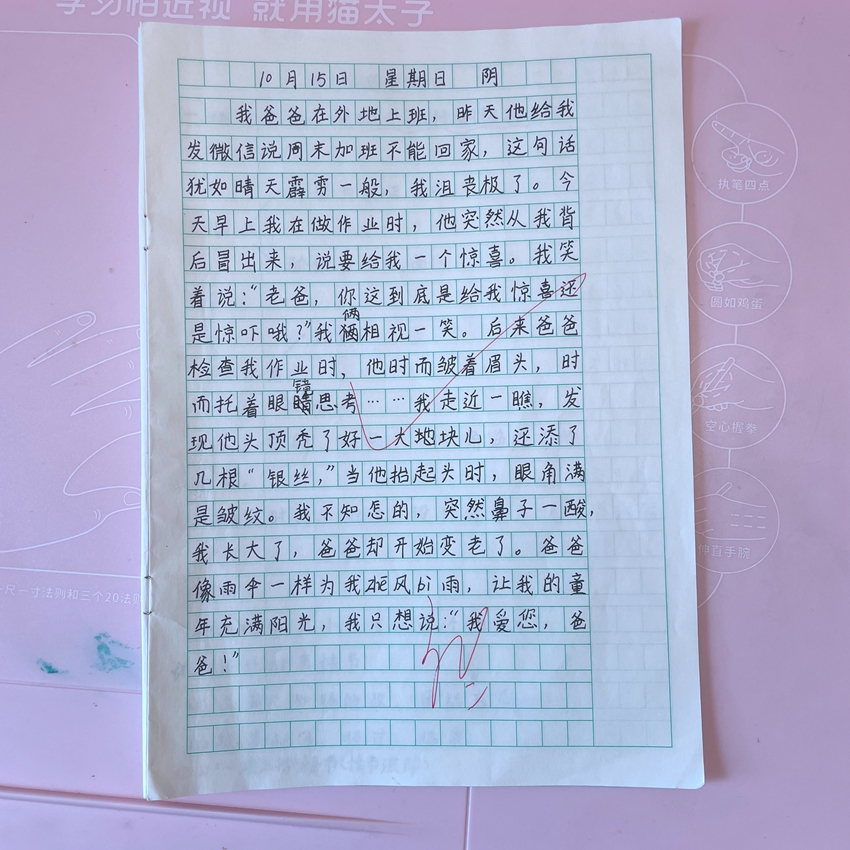 学习怕近视 就用猫太子
10月15日 星期日 阴
我爸爸在外地上班，昨天他给我
发微信说周末加班不能回家，这句话
犹如晴天霹雳一般，我沮丧极了。今
天早上我在做作业时，他突然从我背
后冒出来，说要给我一个惊喜。我笑
着说：“老爸，你这到底是给我惊喜还
是惊吓哦？”我俩相视一笑。后来爸爸
检查我作业时，他时而皱着眉头，时
而托着眼镜思考……我走近一瞧，发
现他头顶秃了好一大地块儿，还添了
几根“银丝，”当他抬起头时，眼角满
是皱纹。我不知怎的，突然鼻子一酸，
我长大了，爸爸却开始变老了。爸爸
像雨伞一样为我zhē风bì雨，让我的童
年充满阳光，我只想说：“我爱您，爸
爸！”
执笔四点
圆如鸡蛋
空心握拳
伸直手腕
一尺一寸法则和三个20法则